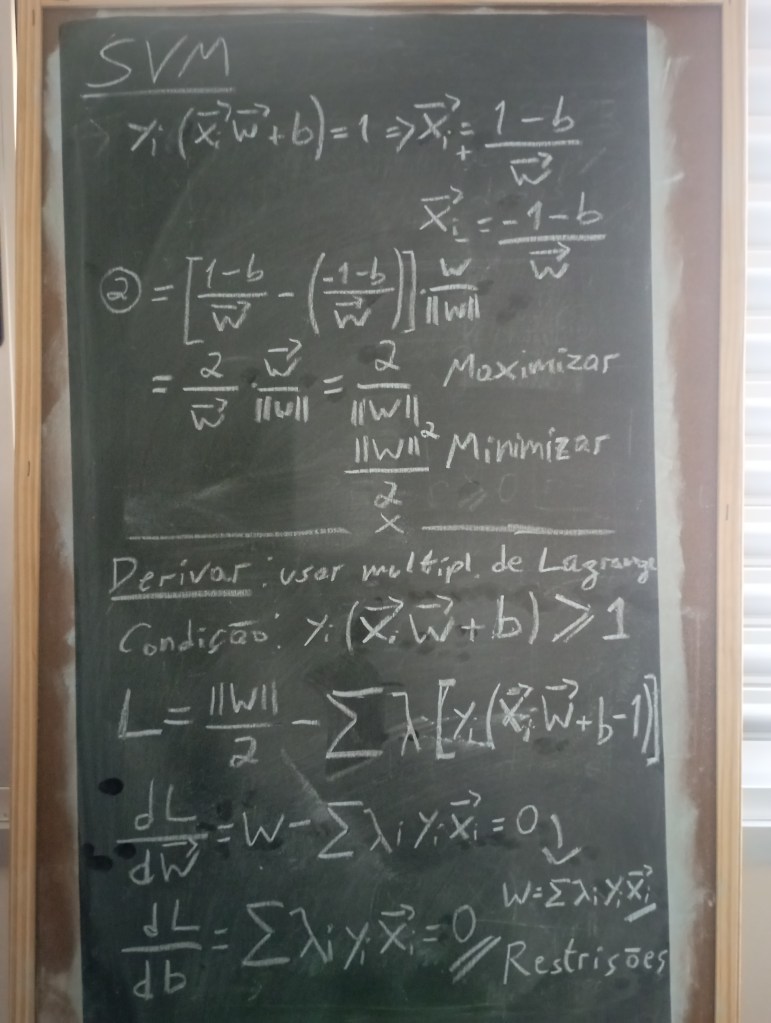 SVM
yᵢ(x⃗ᵢw⃗+b)=1 => x⃗ᵢ₊ = (1-b)/w⃗
x⃗ᵢ₋ = (-1-b)/w⃗
② = [(1-b)/w⃗ - ((-1-b)/w⃗)] · w/||w||
= 2/w⃗ · w⃗/||w|| = 2/||w|| Maximizar
||w||²/2 Minimizar
x
Derivar: usar multipl. de Lagrange
Condição: yᵢ(x⃗ᵢw⃗+b) ≥ 1
L = ||w||/2 - Σ λ[yᵢ(x⃗ᵢ·w⃗+b-1)]
dL/dw⃗ = w - Σ λᵢ yᵢ x⃗ᵢ = 0
w = Σ λᵢ yᵢ x⃗ᵢ
dL/db = Σ λᵢ yᵢ x⃗ᵢ = 0 Restrisões